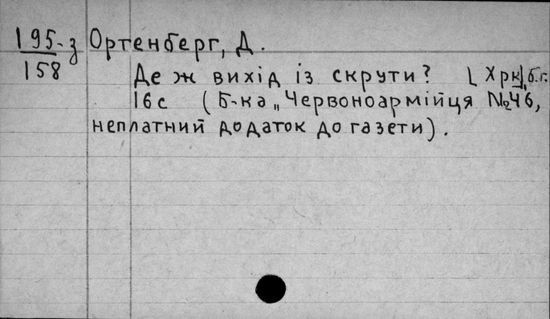 195-з Ортенберг, Д.
158
Де ж вихід із скрути? [Хрк], б.г.
16с (Б-ка „Червоноармійця №46,
неплатний додаток до газети).